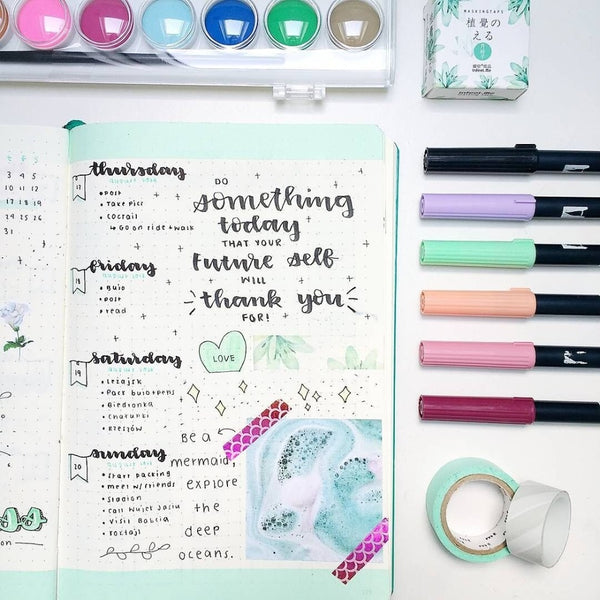 MASKINGTAPE
植覺の
える
3 4 5
10 11 12
17 18 19
24 25 26
31
17
thursday
• Post
• Take Pics
• Cocrail
↳ Go on ride + walk
18
friday
• Buio
• post
• read
19
saturday
• Leżajsk
• Post bujo + pens
• Biedronka
• Chałupki
• Rzeszów
20
sunday
• start packing
• meet w/friends
• Stadion
• Call Wujet Jasiu
• Visit Babcia
DO
something
today
THAT YOUR
future self
WILL
thank you
FOR!
LOVE
Be a
mermaid,
explore
the
deep
oceans.